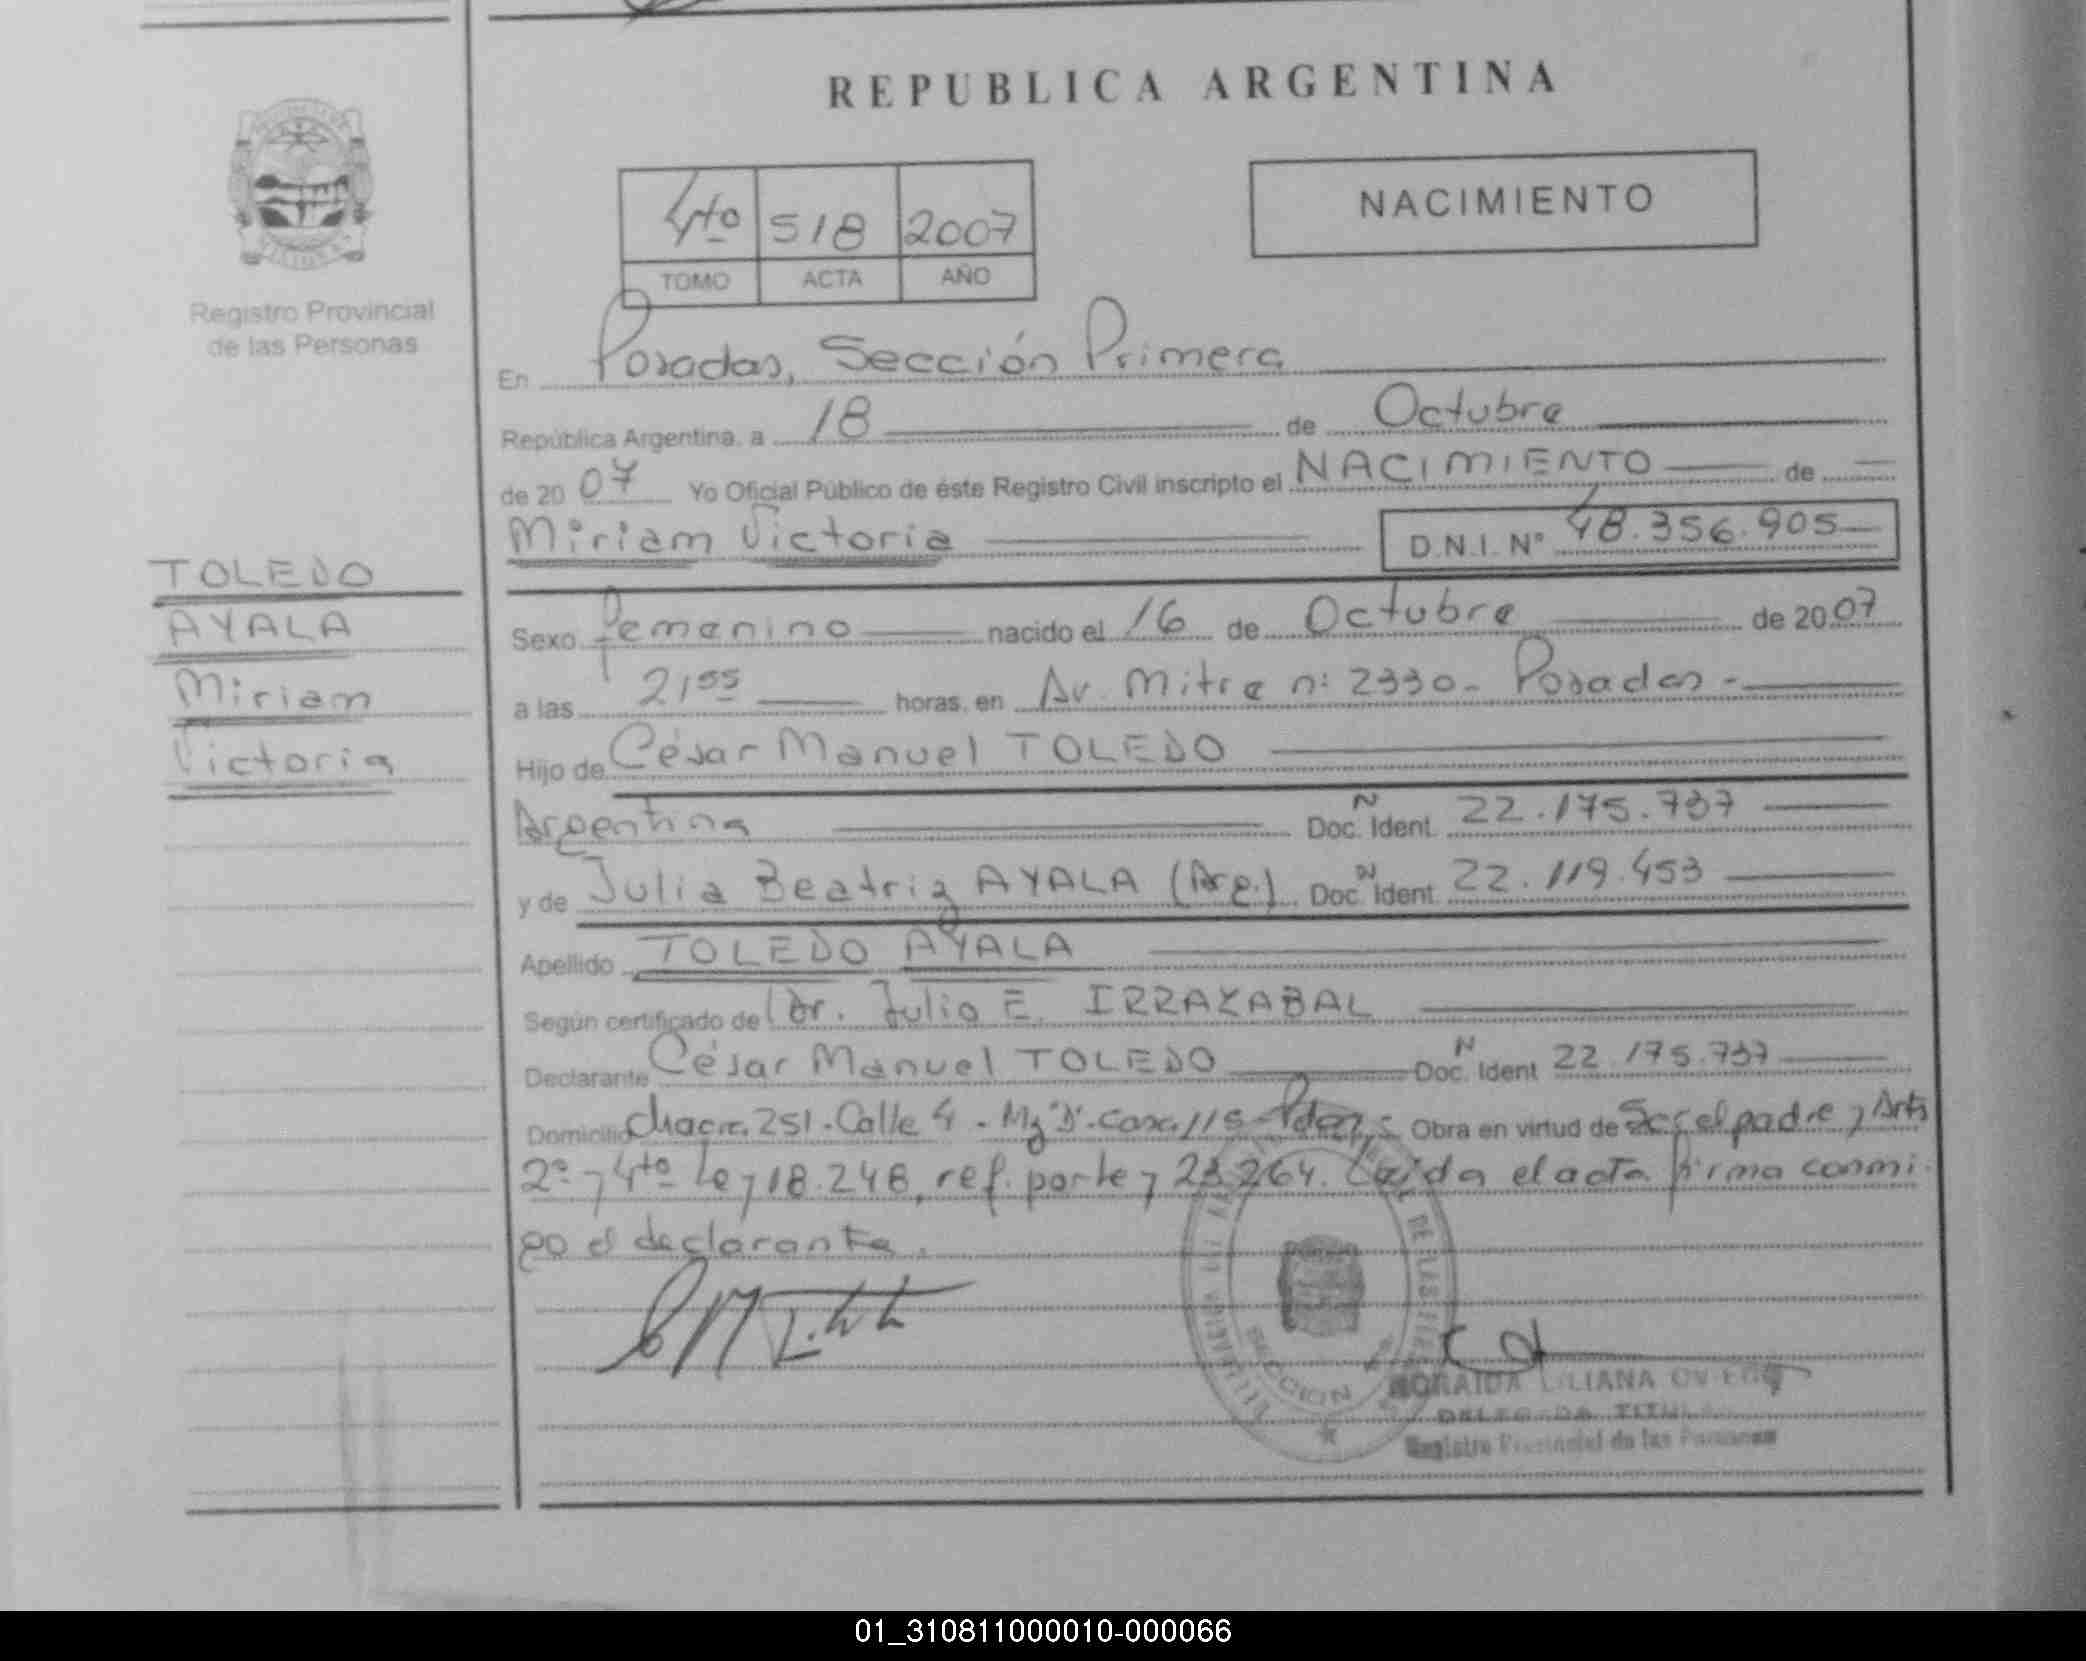 REPUBLICA ARGENTINA
4to 518 2007
TOMO ACTA AÑO
NACIMIENTO
Registro Provincial
de las Personas
En Posadas, Sección Primera
República Argentina, a 18 de Octubre
de 2007 Yo Oficial Público de éste Registro Civil inscripto el NACIMIENTO de
Miriam Victoria D.N.I. Nº 48.356.905
TOLEDO
AYALA
Miriam
Victoria
Sexo femenino nacido el 16 de Octubre de 2007
a las 21 55 horas, en Av. Mitre n: 2330 - Posadas -
Hijo de César Manuel TOLEDO
Argentina Doc. N Ident. 22.175.737
y de Julia Beatriz AYALA (Arg.) Doc. N Ident. 22.119.453
Apellido TOLEDO AYALA
Según certificado de Dr. Julio E. IRRAZABAL
Declarante César Manuel TOLEDO Doc. N Ident 22.175.737
Domicilio Chacra 251 - Calle 4 - Mz "D" - Casa 115 - Pdas; Obra en virtud de Ser el padre y Arts
2º y 4to Ley 18.248, ref. por ley 23.264. Leída el acta firma conmi
go el declarante.
SECCION
DE LAS
LILIANA
DELEGADA TITULAR
Registro Provincial de las Personas
01_310811000010-000066